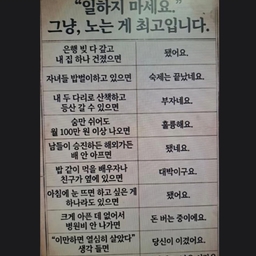 "일하지 마세요."
그냥, 노는 게 최고입니다.
은행 빚 다 갚고
내 집 하나 건졌으면
됐어요.
자녀들 밥벌이하고 있으면
숙제는 끝났네요.
내 두 다리로 산책하고
등산 갈 수 있으면
부자네요.
숨만 쉬어도
월 100만 원 이상 나오면
훌륭해요.
남들이 승진하든 해외가든
배 안 아프면
됐네요.
밥 같이 먹을 배우자나
친구가 옆에 있으면
대박이구요.
아침에 눈 뜨면 하고 싶은 게
하나라도 있으면
됐어요.
크게 아픈 데 없어서
병원비 안 나가면
돈 버는 중이에요.
"이만하면 열심히 살았다"
생각 들면
당신이 이겼어요.